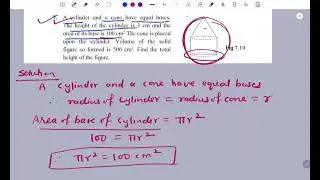 A cylinder and a cone have equal bases.
The height of the cylinder is 3 cm and the
area of its base is 100 cm². The cone is placed
upon the cylinder. Volume of the solid
figure so formed is 500 cm³. Find the total
height of the figure.
Fig 7.10
Solution
A cylinder and a cone have equal bases
∴ radius of cylinder = radius of cone = r
Area of base of cylinder = πr²
100 = πr²
∴ πr² = 100 cm²